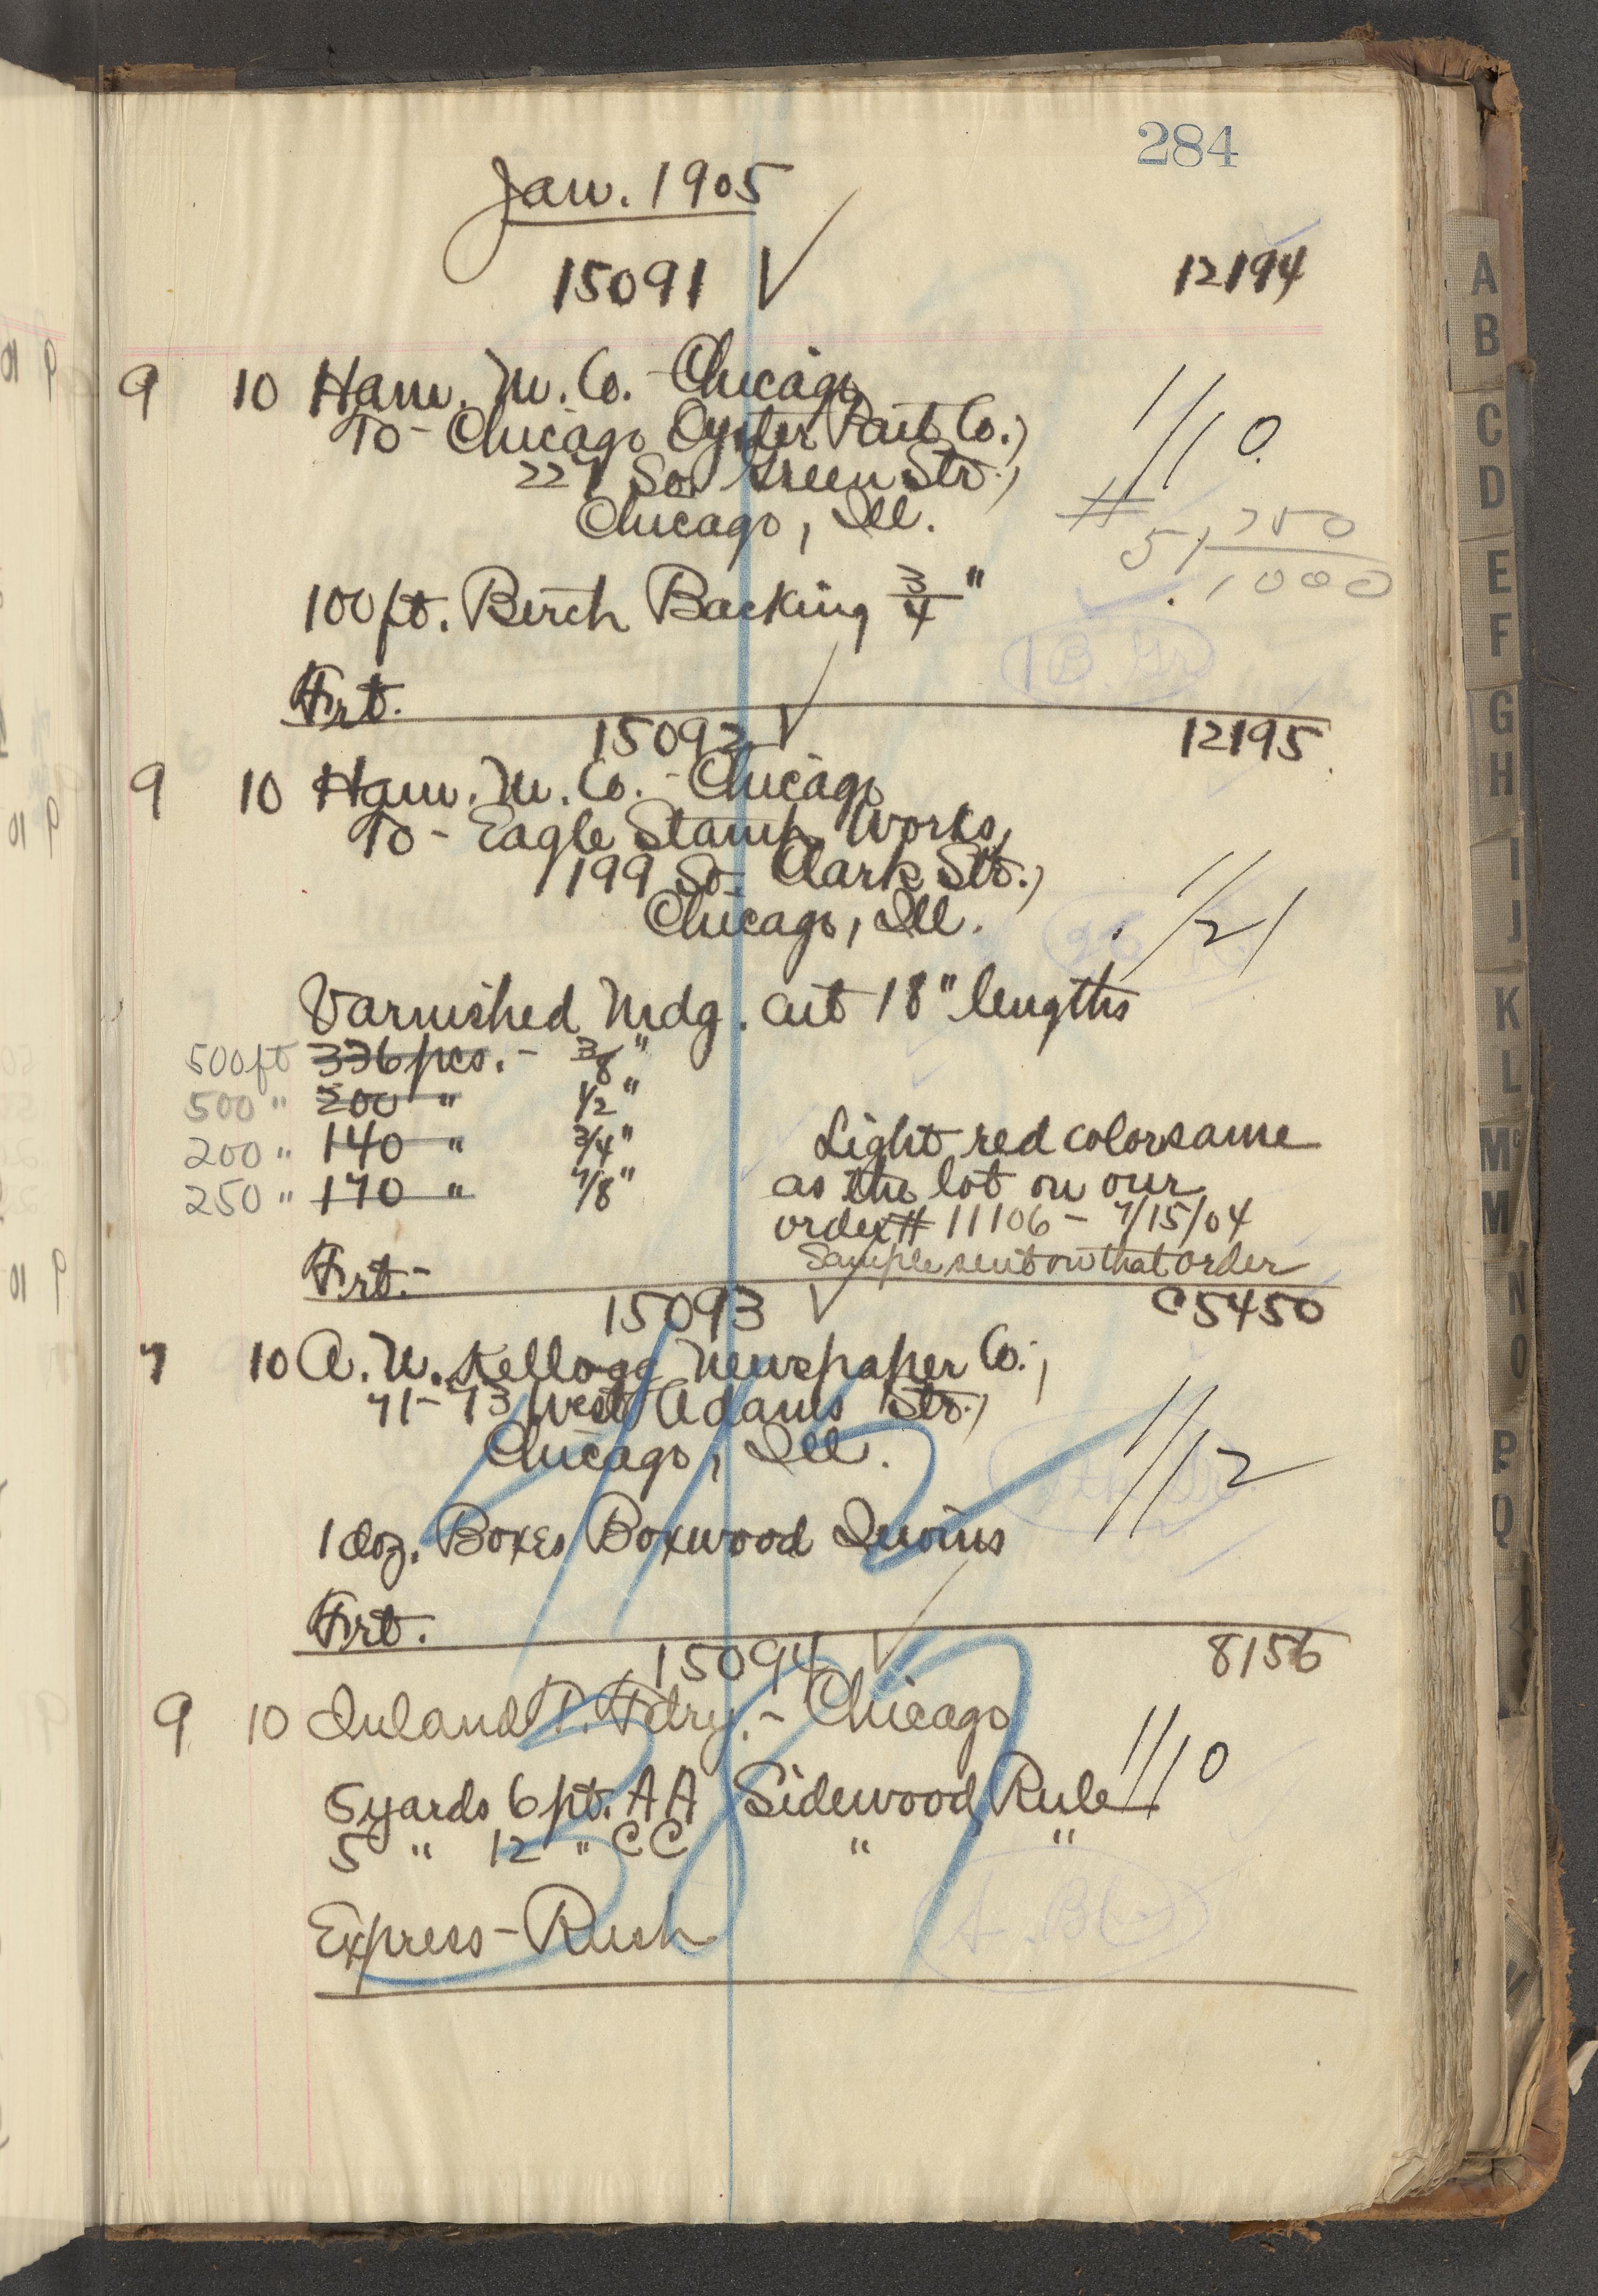 284
Jan. 1905
15091 ✓ 12194
9 10 Ham. M. Co. - Chicago
To - Chicago Oyster Pail Co.,
227 So. Green Str.,
Chicago, Ill.
1/10
100 ft. Birch Backing 3/4"
Frt.
15092 ✓ 12195
9 10 Ham. M. Co. - Chicago
To - Eagle Stamp Works,
199 So. Clark Str.,
Chicago, Ill.
1/21
Varnished Mdg. cut 18" lengths
500ft 336 pcs. - 3/8"
500 " 200 " 1/2"
200 " 140 " 3/4"
250 " 170 " 7/8"
Light red color same
as the lot on our
order # 11106 - 7/15/04
Sample sent on that order
Frt. -
15093 ✓ C5450
7 10 A. N. Kellogg Newspaper Co.,
71-73 West Adams Str.,
Chicago, Ill.
1/12
1 doz. Boxes Boxwood Quoins
Frt.
15094 ✓ 8156
9 10 Inland T. Fdry. - Chicago
1/10
5 yards 6 pt. AA Sidewood Rule
5 " 12 " CC " "
Express - Rush
A
B
C
D
E
F
G
H
I
J
K
L
Mc
M
N
O
P
Q